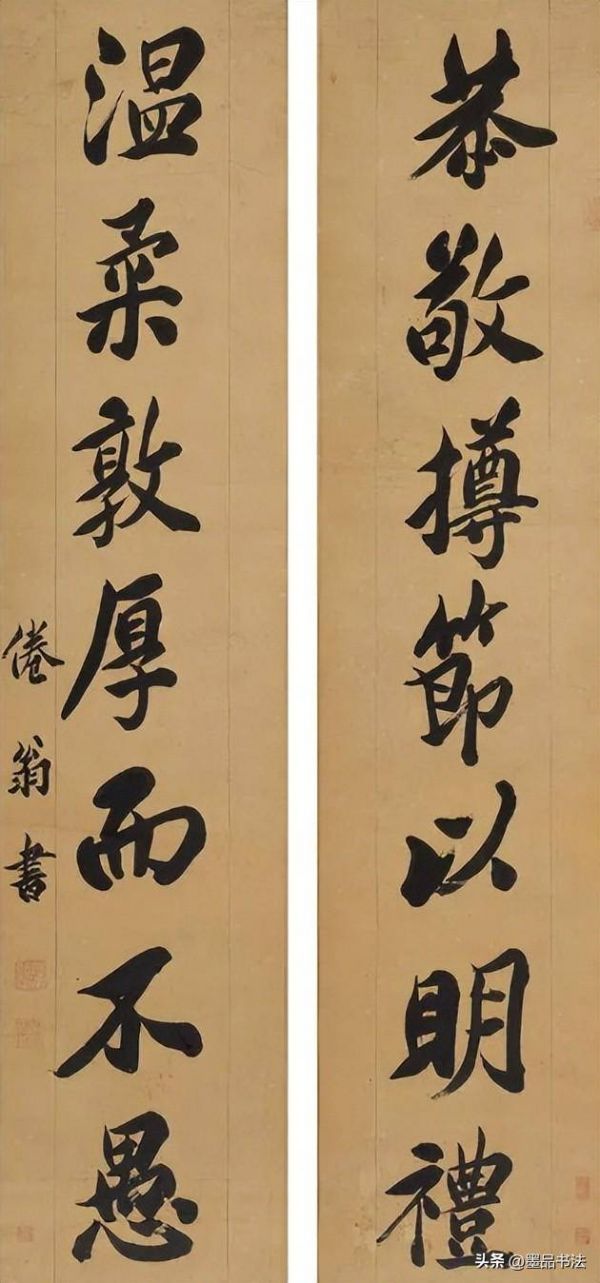 恭敬撙節以明禮
温柔敦厚而不愚
倦翁書
头条 @墨品书法